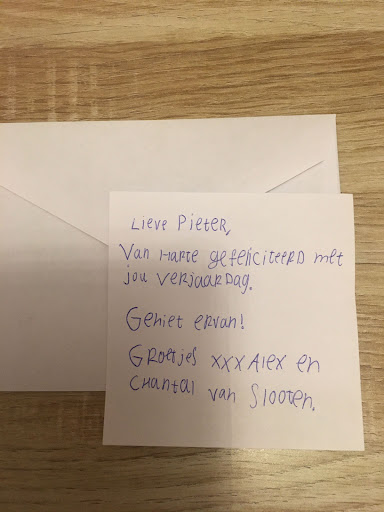 Lieve Pieter,
Van Harte gefeliciteerd met
jou verjaardag.
Geniet ervan!
Groetjes xxx Alex en
Chantal van Slooten.